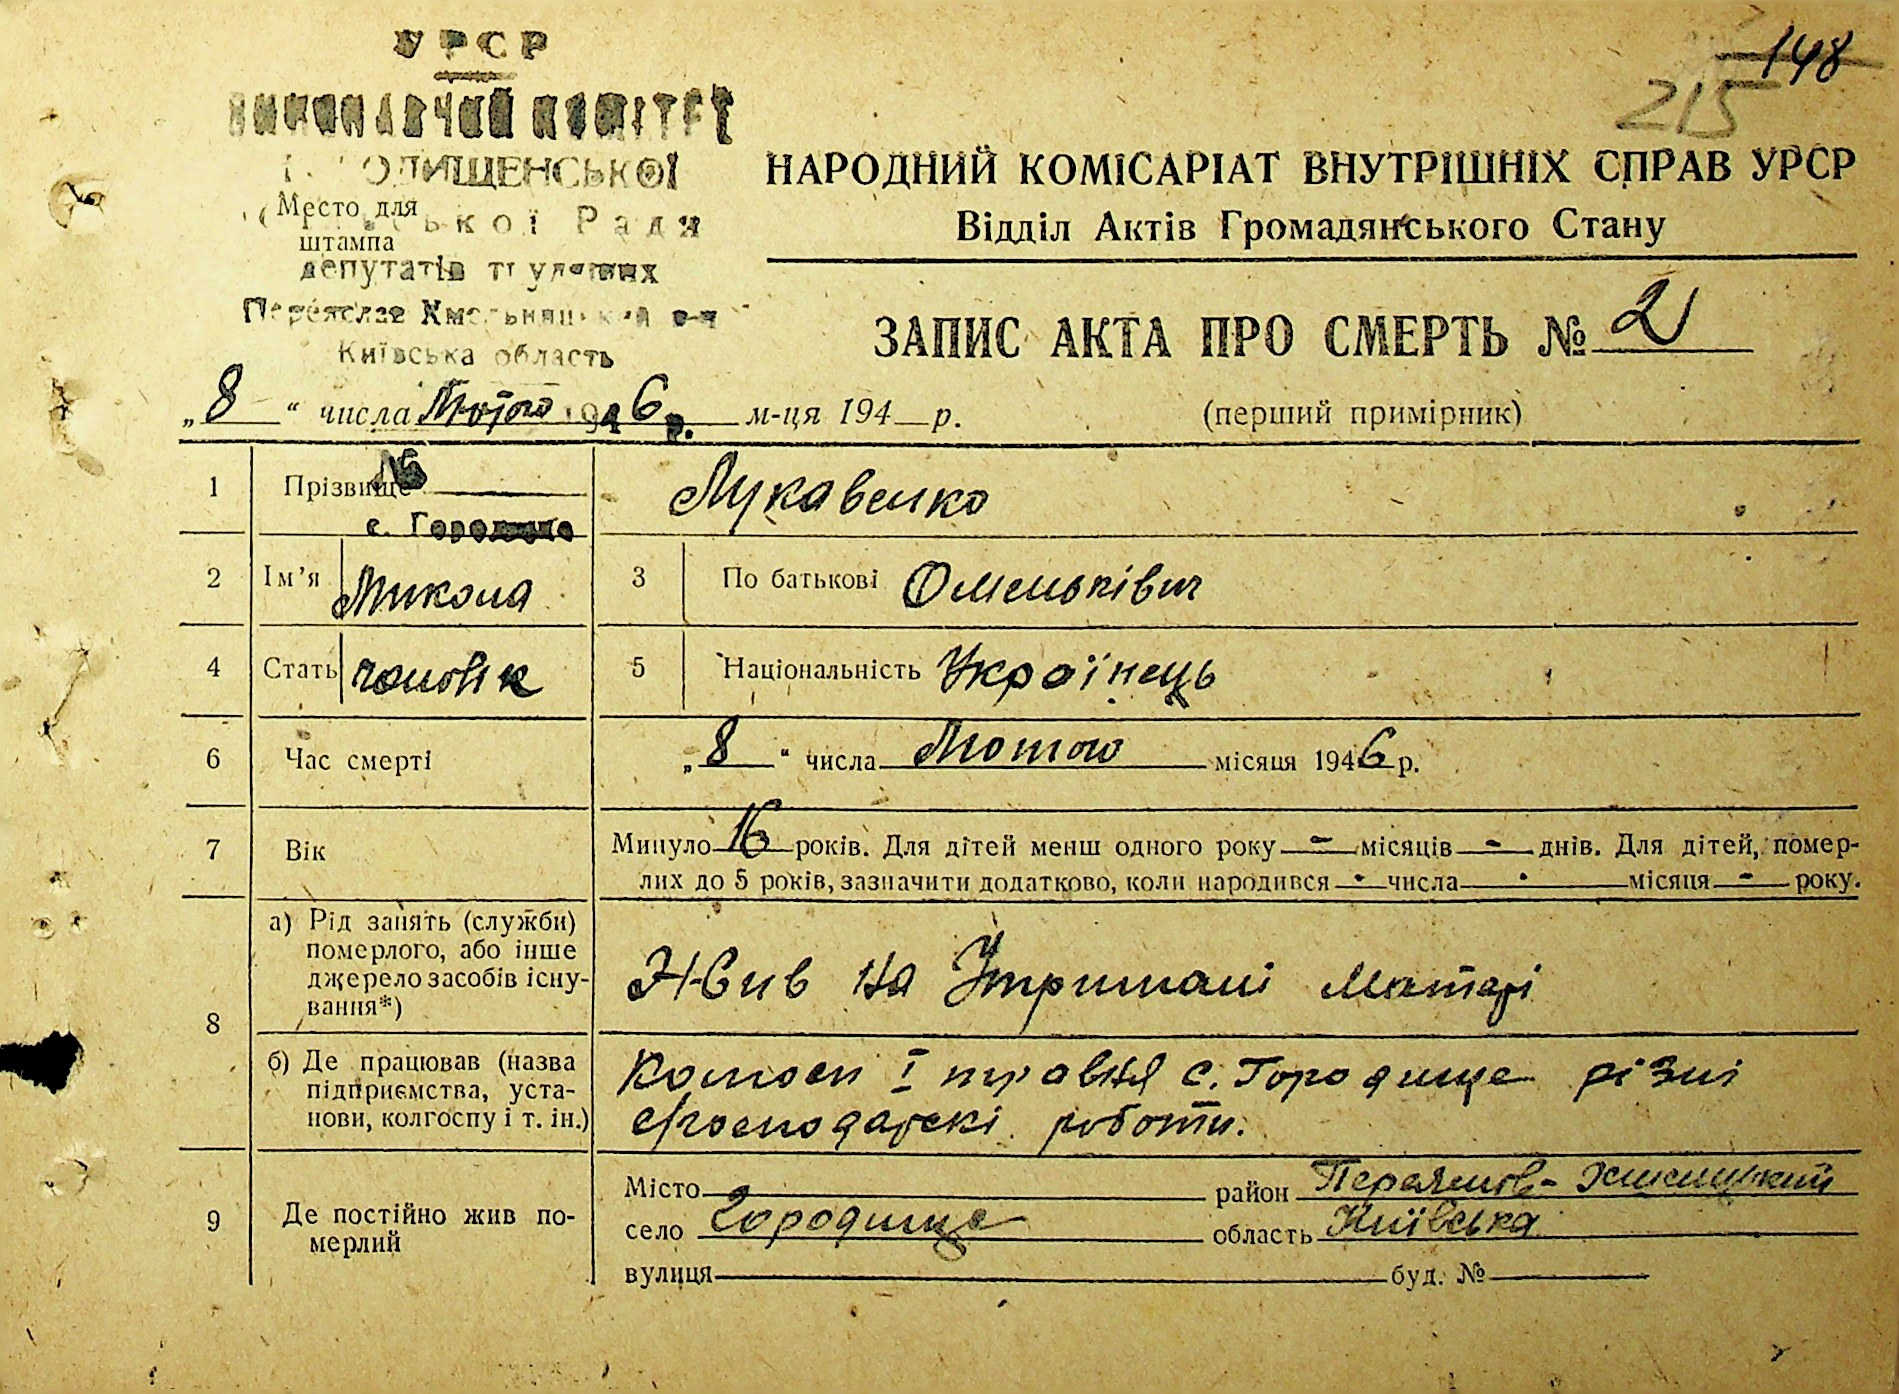 УРСР
ВИКОНАВЧИЙ КОМІТЕТ
ОДИЩЕНСЬКОЇ
Место для
штампа
ської Ради
депутатів трудящих
Переяслав Хмельницький р-н
Київська область
148
215
НАРОДНИЙ КОМІСАРІАТ ВНУТРІШНІХ СПРАВ УРСР
Відділ Актів Громадянського Стану
ЗАПИС АКТА ПРО СМЕРТЬ № 2
„8“ числа Лютого 1946 р. м-ця 194 р.
(перший примірник)
1 Прізвище Лукавенко
№
с. Городище
2 Ім'я Микола 3 По батькові Омельківич
4 Стать чоловік 5 Національність Українець
6 Час смерті „8“ числа Лютого місяця 1946 р.
7 Вік Минуло 16 років. Для дітей менш одного року - місяців - днів. Для дітей, помер-
лих до 5 років, зазначити додатково, коли народився - числа - місяця - року.
8 а) Рід занять (служби)
померлого, або інше
джерело засобів існу-
вання*)
Жив на Утримані Матері
б) Де працював (назва
підприємства, уста-
нови, колгоспу і т. ін.)
Колгосп І травня с. Городище різні
господарскі роботи.
9 Де постійно жив по-
мерлий
Місто район Переяслов-Хмелицький
село Городище область Київська
вулиця буд. №